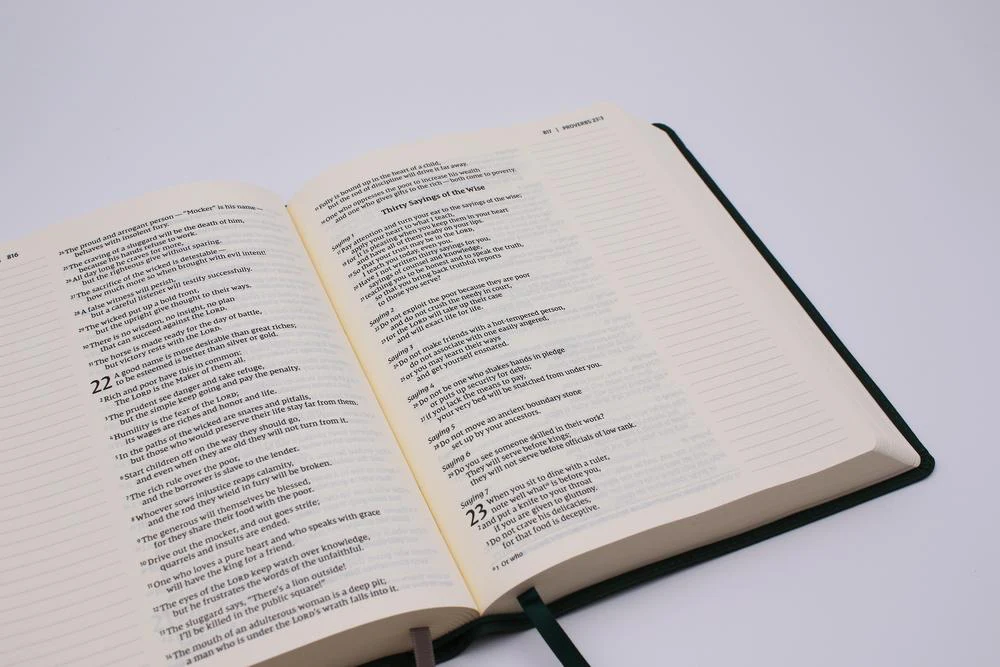 816
24 The proud and arrogant person—“Mocker” is his name—
behaves with insolent fury.
25 The craving of a sluggard will be the death of him,
because his hands refuse to work.
26 All day long he craves for more,
but the righteous give without sparing.
27 The sacrifice of the wicked is detestable—
how much more so when brought with evil intent!
28 A false witness will perish,
but a careful listener will testify successfully.
29 The wicked put up a bold front,
but the upright give thought to their ways.
30 There is no wisdom, no insight, no plan
that can succeed against the LORD.
31 The horse is made ready for the day of battle,
but victory rests with the LORD.
22 A good name is more desirable than great riches;
to be esteemed is better than silver or gold.
2 Rich and poor have this in common:
The LORD is the Maker of them all.
3 The prudent see danger and take refuge,
but the simple keep going and pay the penalty.
4 Humility is the fear of the LORD;
its wages are riches and honor and life.
5 In the paths of the wicked are snares and pitfalls,
but those who would preserve their life stay far from them.
6 Start children off on the way they should go,
and even when they are old they will not turn from it.
7 The rich rule over the poor,
and the borrower is slave to the lender.
8 Whoever sows injustice reaps calamity,
and the rod they wield in fury will be broken.
9 The generous will themselves be blessed,
for they share their food with the poor.
10 Drive out the mocker, and out goes strife;
quarrels and insults are ended.
11 One who loves a pure heart and who speaks with grace
will have the king for a friend.
12 The eyes of the LORD keep watch over knowledge,
but he frustrates the words of the unfaithful.
13 The sluggard says, “There’s a lion outside!
I’ll be killed in the public square!”
14 The mouth of an adulterous woman is a deep pit;
a man who is under the LORD’s wrath falls into it.
817 | PROVERBS 23:3
15 Folly is bound up in the heart of a child,
but the rod of discipline will drive it far away.
16 One who oppresses the poor to increase his wealth
and one who gives gifts to the rich—both come to poverty.
Thirty Sayings of the Wise
Saying 1
17 Pay attention and turn your ear to the sayings of the wise;
apply your heart to what I teach,
18 for it is pleasing when you keep them in your heart
and have all of them ready on your lips.
19 So that your trust may be in the LORD,
I teach you today, even you.
20 Have I not written thirty sayings for you,
sayings of counsel and knowledge,
21 teaching you to be honest and to speak the truth,
so that you bring back truthful reports
to those you serve?
Saying 2
22 Do not exploit the poor because they are poor
and do not crush the needy in court,
23 for the LORD will take up their case
and will exact life for life.
Saying 3
24 Do not make friends with a hot-tempered person,
do not associate with one easily angered,
25 or you may learn their ways
and get yourself ensnared.
Saying 4
26 Do not be one who shakes hands in pledge
or puts up security for debts;
27 if you lack the means to pay,
your very bed will be snatched from under you.
Saying 5
28 Do not move an ancient boundary stone
set up by your ancestors.
Saying 6
29 Do you see someone skilled in their work?
They will serve before kings;
they will not serve before officials of low rank.
Saying 7
23 When you sit to dine with a ruler,
note well what a is before you,
2 and put a knife to your throat
if you are given to gluttony.
3 Do not crave his delicacies,
for that food is deceptive.
a 1 Or who